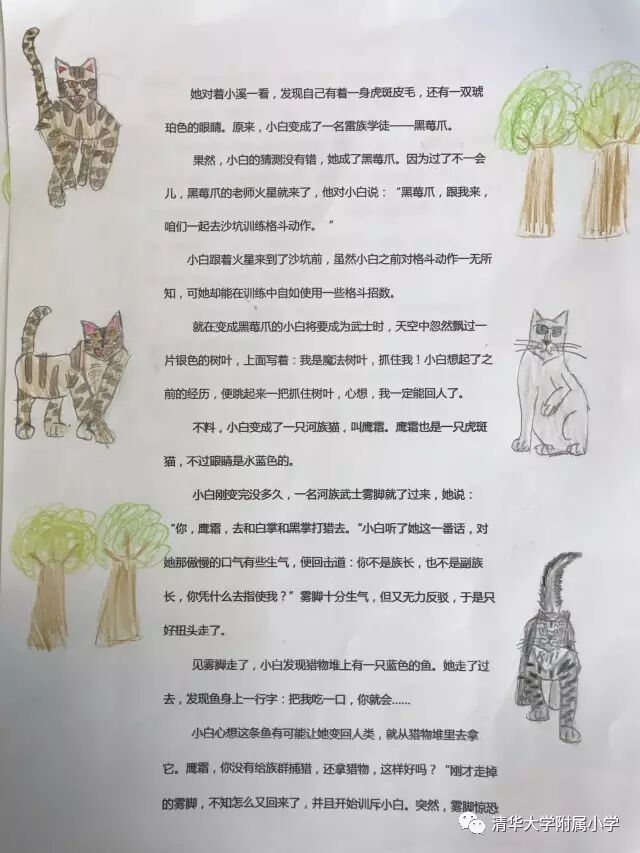 她对着小溪一看，发现自己有着一身虎斑皮毛，还有一双琥
珀色的眼睛。原来，小白变成了一名雷族学徒——黑莓爪。
果然，小白的猜测没有错，她成了黑莓爪。因为过了不一会
儿，黑莓爪的老师火星就来了，他对小白说：“黑莓爪，跟我来，
咱们一起去沙坑训练格斗动作。“
小白跟着火星来到了沙坑前，虽然小白之前对格斗动作一无所
知，可她却能在训练中自如使用一些格斗招数。
就在变成黑莓爪的小白将要成为武士时，天空中忽然飘过一
片银色的树叶，上面写着：我是魔法树叶，抓住我！小白想起了之
前的经历，便跳起来一把抓住树叶，心想，我一定能回人了。
不料，小白变成了一只河族猫，叫鹰霜。鹰霜也是一只虎斑
猫，不过眼睛是水蓝色的。
小白刚变完没多久，一名河族武士雾脚就了过来，她说：
“你，鹰霜，去和白掌和黑掌打猎去。”小白听了她这一番话，对
她那傲慢的口气有些生气，便回击道：你不是族长，也不是副族
长，你凭什么去指使我？”雾脚十分生气，但又无力反驳，于是只
好扭头走了。
见雾脚走了，小白发现猎物堆上有一只蓝色的鱼。她走了过
去，发现鱼身上一行字：把我吃一口，你就会......
小白心想这条鱼有可能让她变回人类，就从猎物堆里去拿
它。鹰霜，你没有给族群捕猎，还拿猎物，这样好吗？“刚才走掉
的雾脚，不知怎么又回来了，并且开始训斥小白。突然，雾脚惊恐
清华大学附属小学